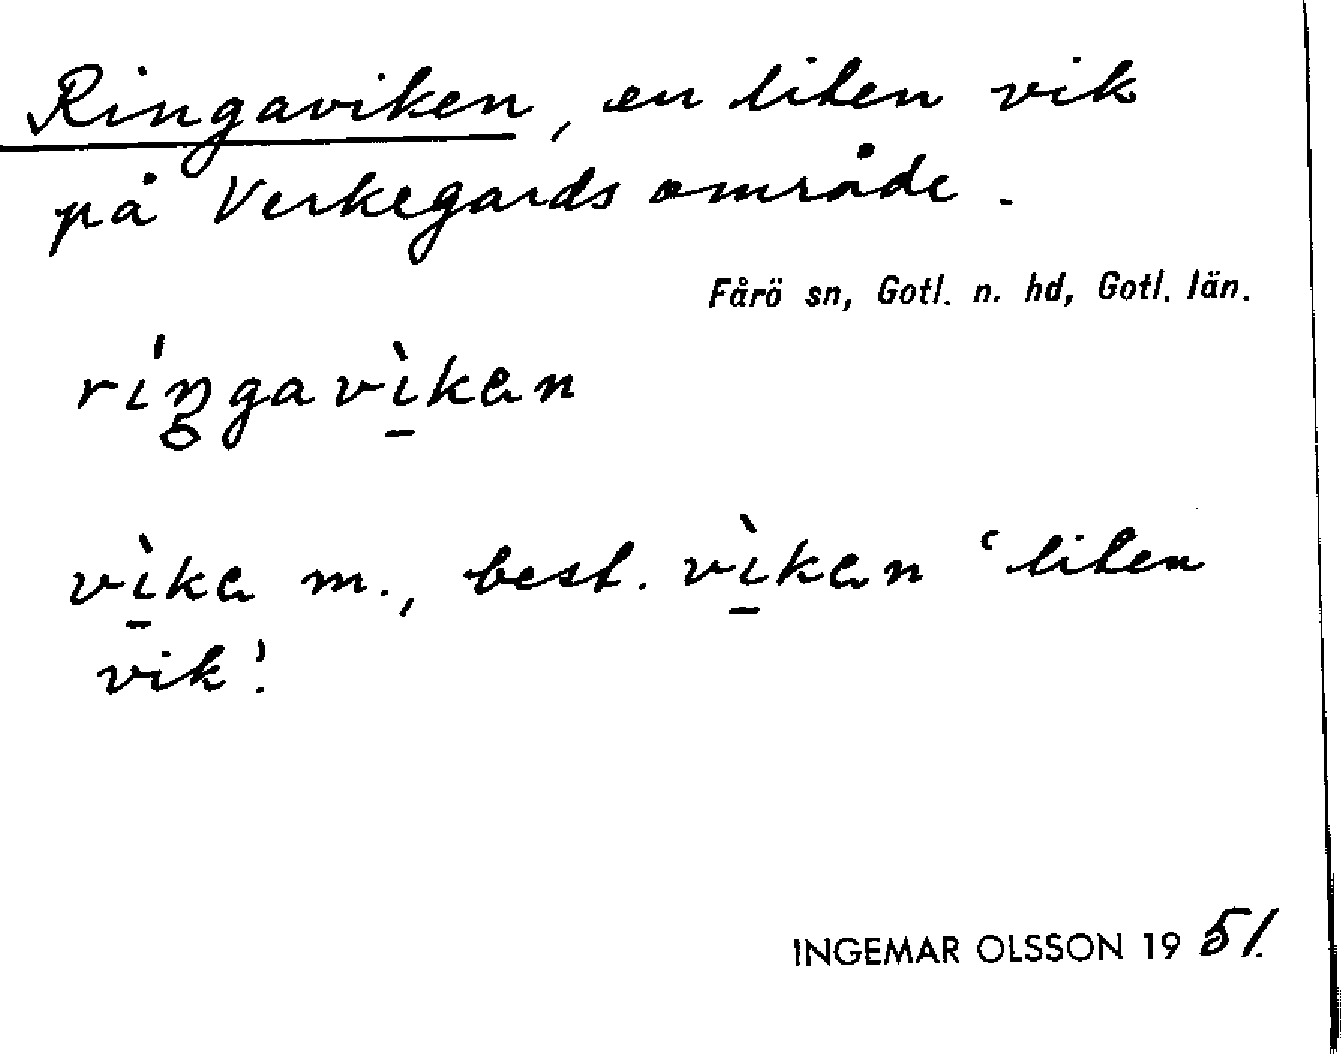 Ringaviken, en liten vik
på Verkegards område.
Fårö sn, Gotl. n. hd, Gotl. län.
ríŋgavì̱kan
vì̱ka m., best. vì̱kan ‘liten
vik’.
INGEMAR OLSSON 19 51.